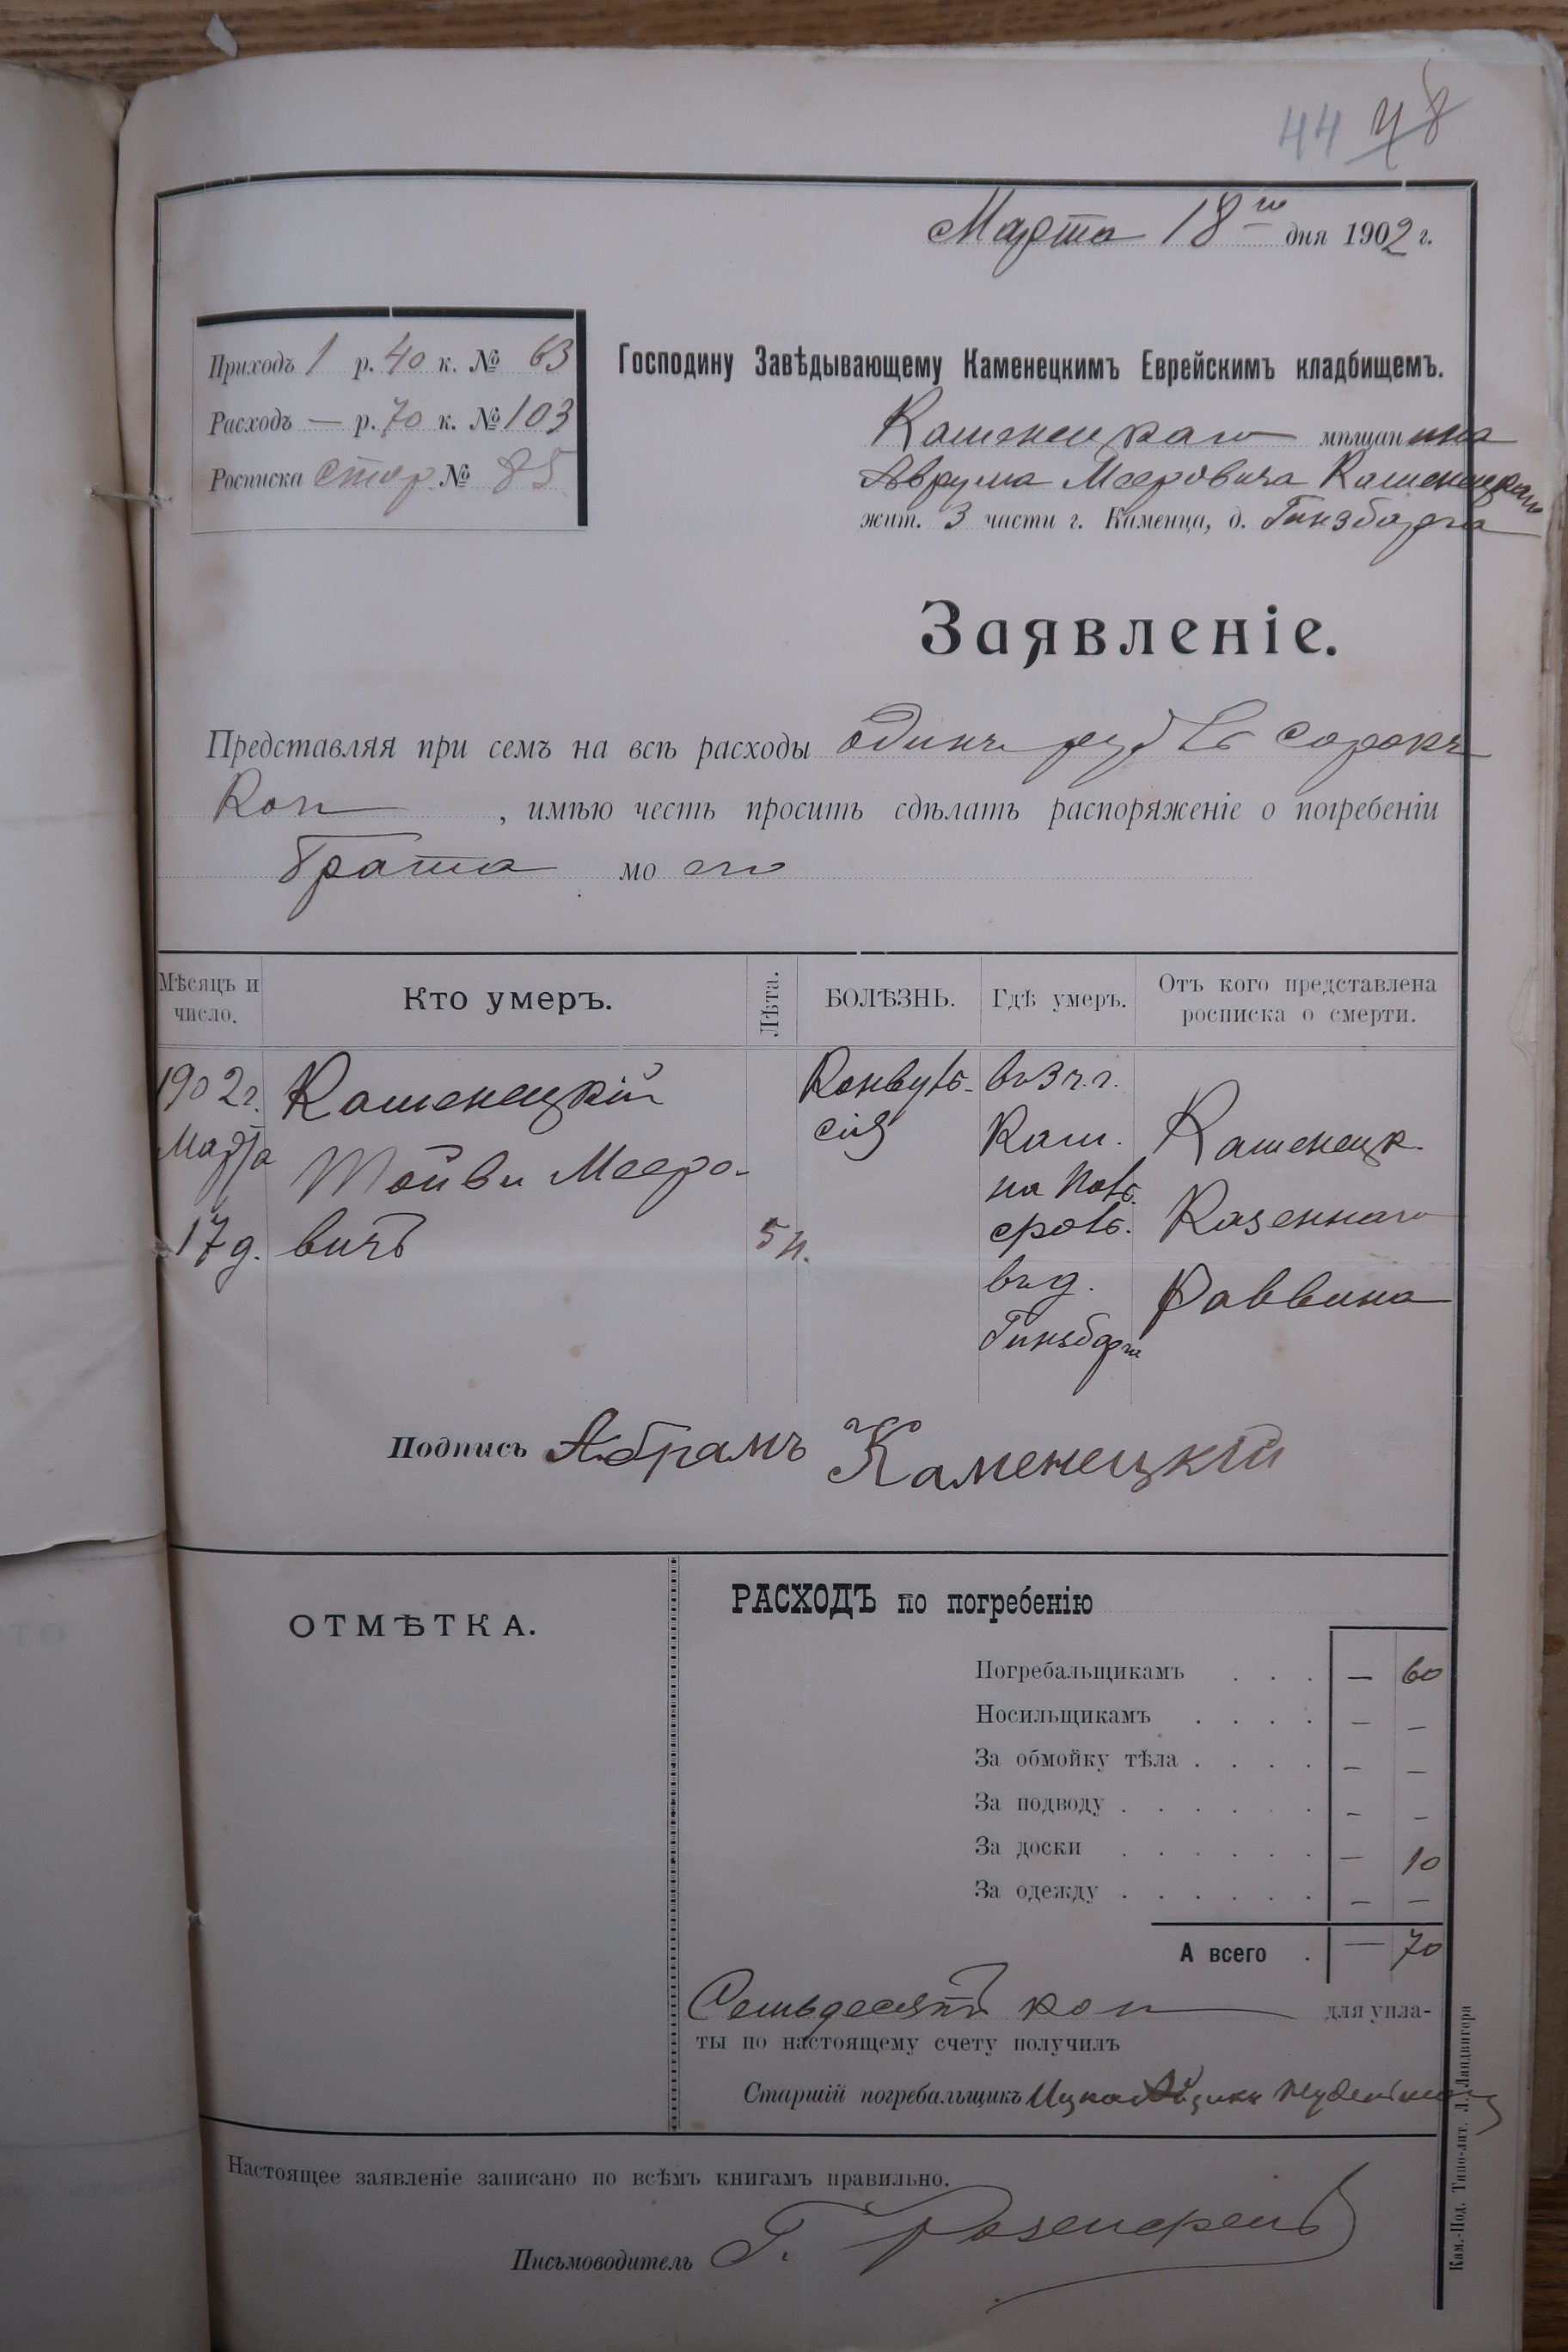 44 78
Марта 18го дня 1902 г.
Приходъ 1 р. 40 к. № 63
Расходъ — р. 70 к. № 103
Росписка стор № 85
Господину Завѣдывающему Каменецкимъ Еврейскимъ кладбищемъ.
Каменецкаго мѣщанина
Аврума Мееровича Каменецкаго
жит. 3 части г. Каменца, д. Гинзбарга
Заявленіе.
Представляя при семъ на всѣ расходы одинъ руб сорокъ
коп , имѣю честь просить сдѣлать распоряженіе о погребеніи
брата моего
Мѣсяцъ и число. Кто умеръ. Лѣта. БОЛѢЗНЬ. Гдѣ умеръ. Отъ кого представлена росписка о смерти.
1902 г. Каменецкій Конвуль- въ 3 ч. г.
Марта Тойви Мееро- сія Кам. Каменецк.
на
17 д. вичъ 5 Казеннаго
въ д. Раввина
Гинзбарга
Подпись Абрамъ Каменецкій
ОТМѢТКА.
РАСХОДЪ по погребенію
Погребальщикамъ . . . — 60
Носильщикамъ . . . . — —
За обмойку тѣла . . . . — —
За подводу . . . . . . — —
За доски . . . . . . — 10
За одежду . . . . . . — —
А всего . — 70
Семьдесятъ коп для упла-
ты по настоящему счету получилъ
Старшій погребальщикъ
Настоящее заявленіе записано по всѣмъ книгамъ правильно.
Письмоводитель Г.
Кам.-Под. Типо-лит. Л. Ландвигера